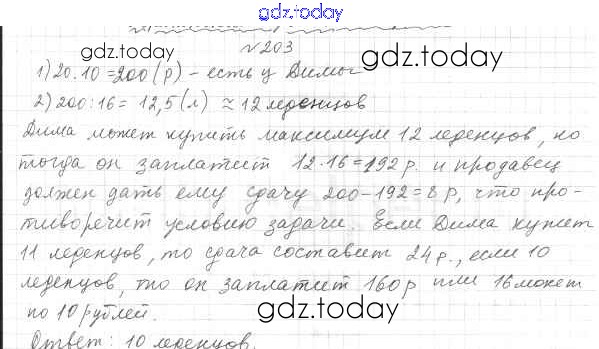 gdz.today
№203
gdz.today
gdz.today
1) 20·10=200 (р) - есть у Димы
2) 200:16= 12,5 (л) ≈ 12 леденцов
Дима может купить максимум 12 леденцов, но
тогда он заплатит 12·16=192 р. и продавец
должен дать ему сдачу 200-192=8 р, что про-
тиворечит условию задачи. Если Дима купит
11 леденцов, то сдача составит 24 р., если 10
леденцов, то он заплатит 160 р или 16 монет
по 10 рублей.
gdz.today
Ответ: 10 леденцов.